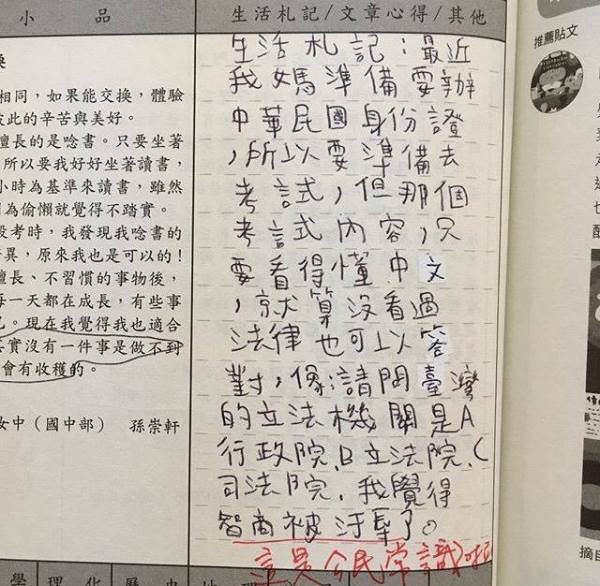 小品
相同，如果能交換，體驗
彼此的辛苦與美好。
擅長的是唸書。只要坐著
所以要我好好坐著讀書，
小時為基準來讀書，雖然
因為偷懶就覺得不踏實。
段考時，我發現我唸書的
異，原來我也是可以的！
擅長、不習慣的事物後，
每一天都在成長，有些事
。現在我覺得我也適合
其實沒有一件事是做不到
會有收穫的。
女中（國中部） 孫崇軒
生活札記/文章心得/其他
生活札記：最近
我媽準備要辦
中華民國身份證
，所以要準備去
考試，但那個
考試內容，只
要看得懂中文
，就算沒看過
法律也可以答
對，像:請問臺灣
的立法機關是A
行政院、B立法院、C
司法院，我覺得
智商被汙辱了。
這是公民常識啦
學 理化 歷史 地理
推薦貼文
摘自